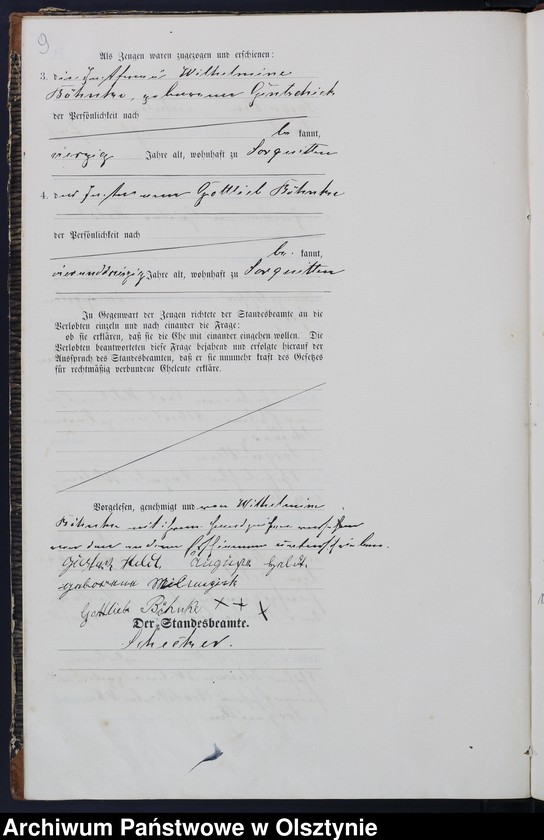 9
Als Zeugen waren zugezogen und erschienen:
3. die Instfrau Wilhelmine
Böhnke, geborene
der Persönlichkeit nach
be kannt,
vierzig Jahre alt, wohnhaft zu Sorquitten
4. der Instmann Gottlieb Böhnke
der Persönlichkeit nach
be kannt,
vierunddreißig Jahre alt, wohnhaft zu Sorquitten
In Gegenwart der Zeugen richtete der Standesbeamte an die
Verlobten einzeln und nach einander die Frage:
ob sie erklären, daß sie die Ehe mit einander eingehen wollen. Die
Verlobten beantworteten diese Frage bejahend und erfolgte hierauf der
Ausspruch des Standesbeamten, daß er sie nunmehr kraft des Gesetzes
für rechtmäßig verbundene Eheleute erkläre.
Vorgelesen, genehmigt und von Wilhelmine
Böhnke mit ihrem Handzeichen versehen
von den andern Erschienenen unterschrieben.
Gustav Heldt Auguste Heldt
geborene
Gottlieb Böhnke + + +
Der Standesbeamte.
Archiwum Państwowe w Olsztynie